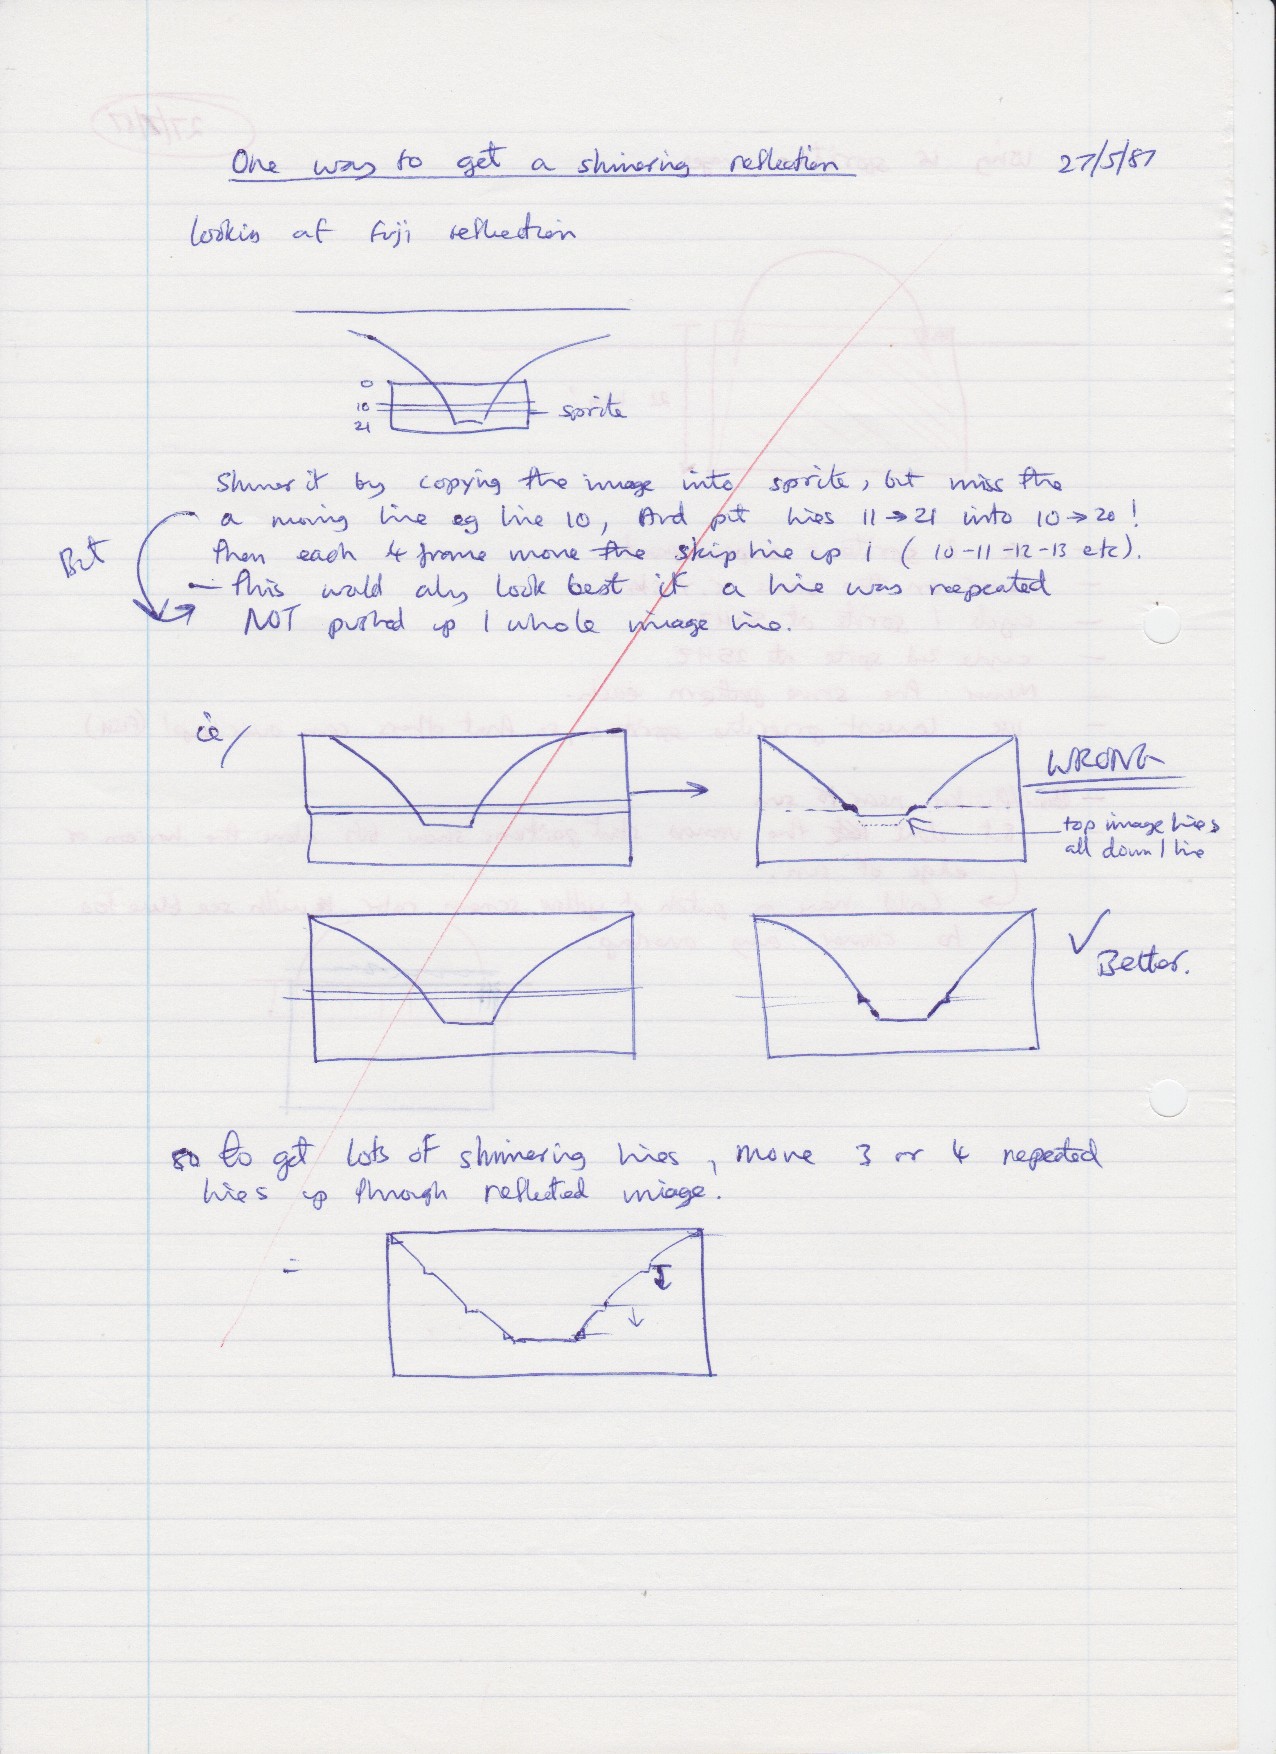 One way to get a shimering reflection 27/5/87
lookin at fuji reflection
0
10
21
sprite
Shimer it by copying the image into sprite, but miss the
a moving line eg line 10, And put lines 11→21 into 10→20!
Then each 4 frame move the skip line up 1 (10-11-12-13 etc).
But
— This would also look best if a line was repeated
NOT pushed up 1 whole image line.
ie/
WRONG
top image lines
all down 1 line
✓ Better.
so to get lots of shimering lines, move 3 or 4 repeated
lines up through reflected image.
=